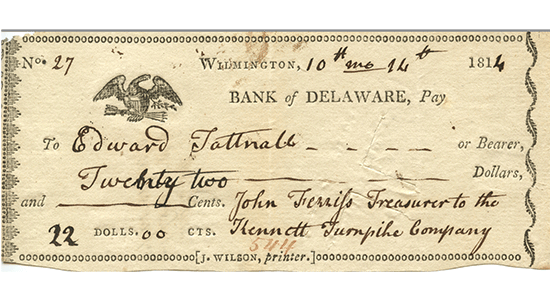 No. 27 Wilmington, 10th mo 14th 1814
BANK of DELAWARE, Pay
To Edward Tattnall - - - - or Bearer,
Twenty two — — — — Dollars,
and ——— Cents. John Ferriss Treasurer to the
22 DOLLS. 00 CTS. Kennett Turnpike Company
544
[J. WILSON, printer.]